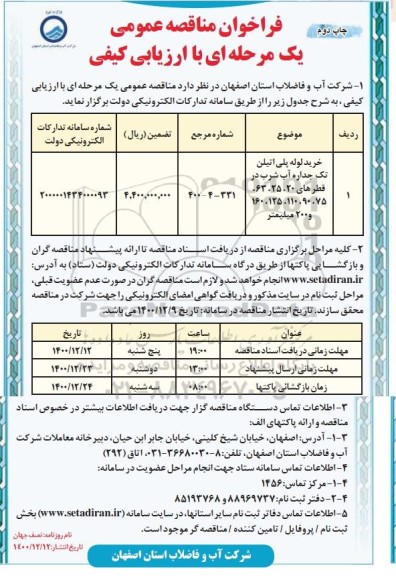 چاپ دوم
فراخوان مناقصه عمومی
یک مرحله ای با ارزیابی کیفی
۱- شرکت آب و فاضلاب استان اصفهان در نظر دارد مناقصه عمومی یک مرحله ای با ارزیابی
کیفی ، به شرح جدول زیر را از طریق سامانه تدارکات الکترونیکی دولت برگزار نماید.
ردیف موضوع شماره مرجع تضمین (ریال) شماره سامانه تدارکات الکترونیکی دولت
۱ خرید لوله پلی اتیلن ۴۰۰-۴-۳۳۱ ۴,۴۰۰,۰۰۰,۰۰۰ ۲۰۰۰۰۰۱۴۳۴۰۰۰۰۹۳
تک جداره آب شرب در
قطرهای ۲۰، ۲۵، ۶۳،
۷۵، ۹۰، ۱۱۰، ۱۲۵، ۱۶۰
و ۲۰۰ میلیمتر
۲- کلیه مراحل برگزاری مناقصه از دریافت اسناد مناقصه تا ارائه پیشنهاد مناقصه گران
و بازگشایی پاکتها از طریق درگاه سامانه تدارکات الکترونیکی دولت (ستاد) به آدرس:
www.setadiran.ir انجام خواهد شد و لازم است مناقصه گران در صورت عدم عضویت قبلی،
مراحل ثبت نام در سایت مذکور و دریافت گواهی امضای الکترونیکی را جهت شرکت در مناقصه
محقق سازند. تاریخ انتشار مناقصه در سامانه: تاریخ ۱۴۰۰/۱۲/۹ می باشد.
عنوان ساعت روز تاریخ
مهلت زمانی دریافت اسناد مناقصه ۱۹:۰۰ پنج شنبه ۱۴۰۰/۱۲/۱۲
مهلت زمانی ارسال پیشنهاد ۱۳:۰۰ دوشنبه ۱۴۰۰/۱۲/۲۳
زمان بازگشائی پاکتها ۰۸:۰۰ سه شنبه ۱۴۰۰/۱۲/۲۴
۳- اطلاعات تماس دستگاه مناقصه گزار جهت دریافت اطلاعات بیشتر در خصوص اسناد
مناقصه و ارائه پاکتهای الف:
۳-۱- آدرس: اصفهان، خیابان شیخ کلینی، خیابان جابر ابن حیان، دبیرخانه معاملات شرکت
آب و فاضلاب استان اصفهان، تلفن: ۸-۳۶۶۸۰۰۳۰-۰۳۱، اتاق (۲۹۲)
۴- اطلاعات تماس سامانه ستاد جهت انجام مراحل عضویت در سامانه:
۴-۱- مرکز تماس: ۱۴۵۶
۴-۲- دفتر ثبت نام: ۸۸۹۶۹۷۳۷ و ۸۵۱۹۳۷۶۸
۵- اطلاعات تماس دفاتر ثبت نام سایر استانها، در سایت سامانه (www.setadiran.ir) بخش
ثبت نام / پروفایل / تامین کننده / مناقصه گر موجود است.
نام روزنامه: نصف جهان
تاریخ انتشار: ۱۴۰۰/۱۲/۱۲
شرکت آب و فاضلاب استان اصفهان